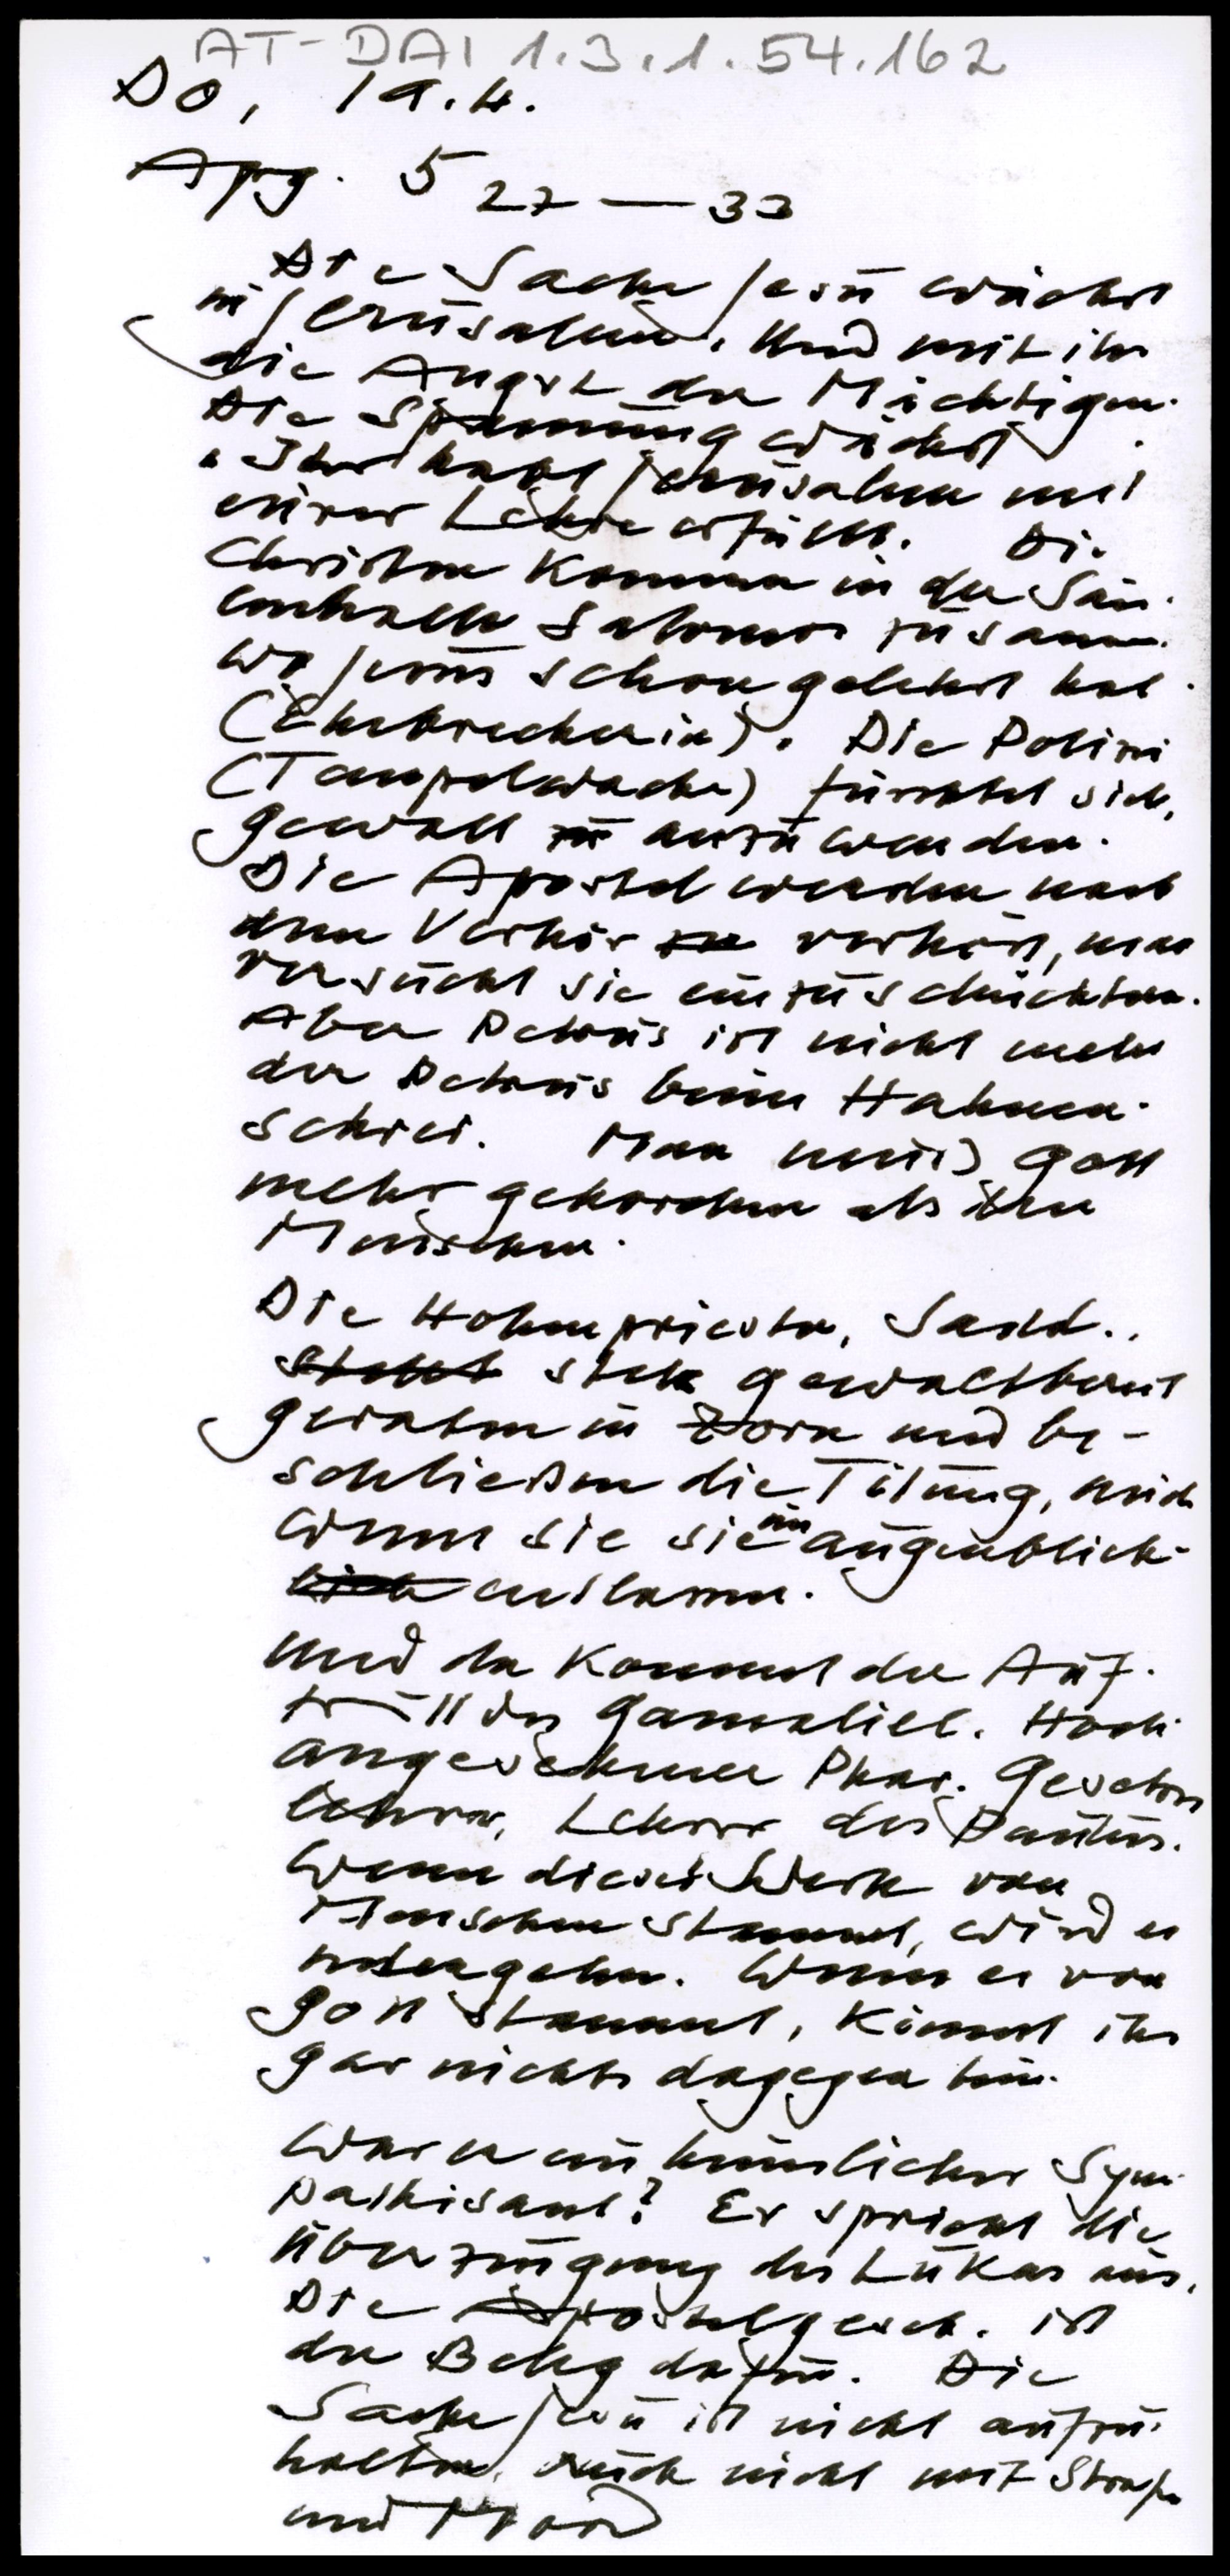 AT-DAI 1.3.1.54.162
Do, 19.4.
Apg. 5 27 — 33
Die Sache Jesu wächst
in Jerusalem. Und mit ihr
die Angst der Mächtigen.
Die Spannung wächst.
"Ihr habt Jerusalem mit
eurer Lehre erfüllt. Die
Christen kommen in der Säu-
lenhalle Salomos zusammen.
wo Jesus schon gelehrt hat.
(Ehebrecherin). Die Polizei
(Tempelwache) fürchtet sich,
Gewalt zu anzuwenden.
Die Apostel werden nach
dem Verhör verhört, man
versucht sie einzuschüchtern.
Aber Petrus ist nicht mehr
der Petrus beim Hahnen-
schrei. Man muß Gott
mehr gehorchen als den
Menschen.
Die Hohenpriester, Sadd..
steht stets gewaltbereit
geraten in Zorn und be-
schließen die Tötung, auch
wenn sie sie im Augenblick
lich entlassen.
Und da kommt der Auf-
tritt des Gamaliel. Hoch
angesehener Phar. Gesetzes
lehrer, Lehrer des Paulus.
Wenn dieses Werk von
Menschen stammt, wird es
untergehen. Wenn es von
Gott stammt, könnt ihr
gar nichts dagegen tun.
War er ein heimlicher Sym-
pathisant? Er spricht die
Überzeugung des Lukas aus.
Die Apostelgesch. ist
der Beleg dafür. Die
Sache Jesu ist nicht aufzu-
halten, auch nicht mit Strafe
und Mord